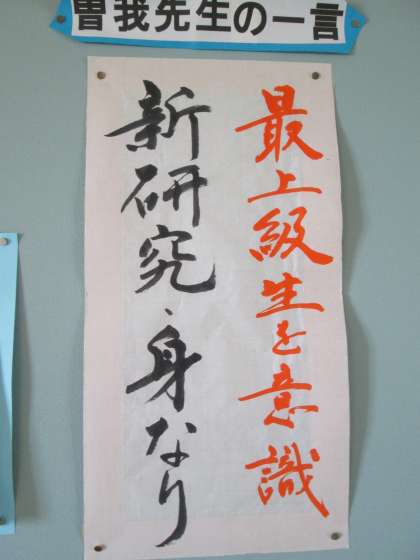 曽我先生の一言
最上級生を意識
新研究、身なり